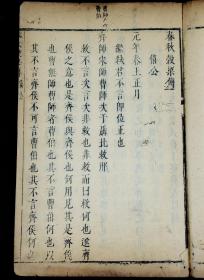 春秋穀梁傳
僖公
元年春王正月
繼弑君不言即位正也
齊師宋師曹師次于聶北救邢
救不言次言次非救也非救而曰救何也遂齊
侯之意也是齊侯與齊侯也何用見其是齊侯
也曹無師曹師者曹伯也其不言曹伯何也以
其不言齊侯不可言曹伯也其不言齊侯何也以